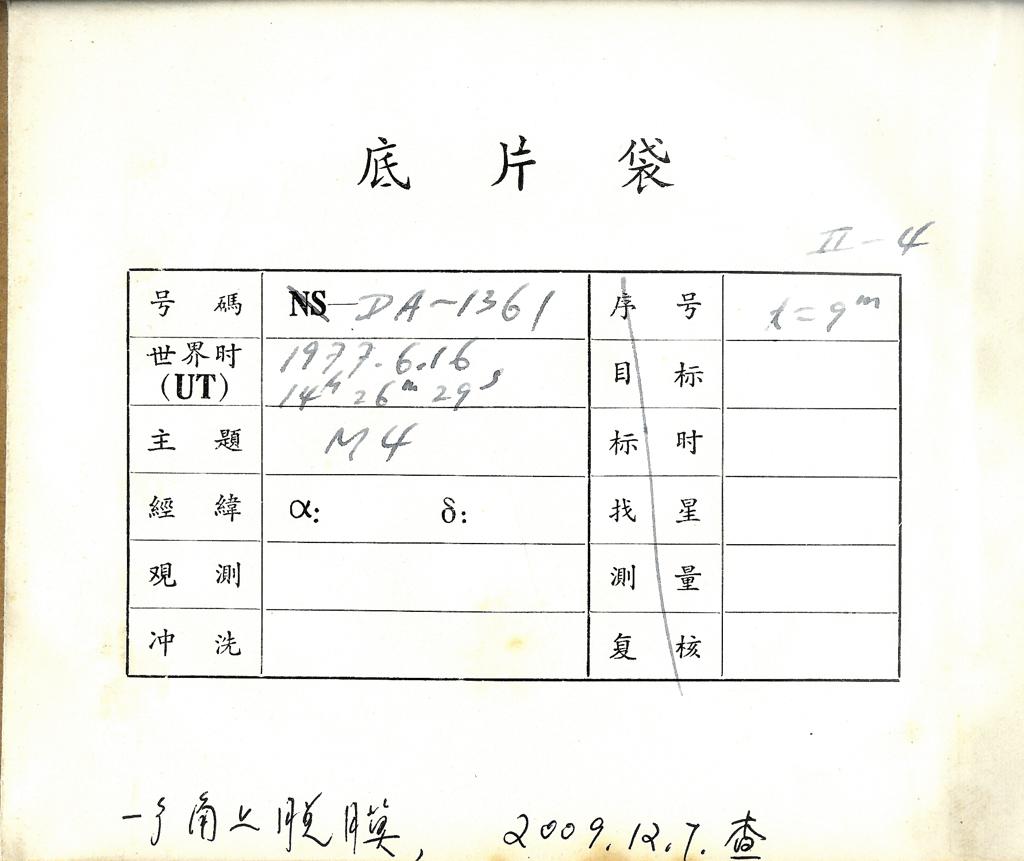 底片袋
II-4
号碼 NS-DA-1361 序号 t=9ᵐ
世界时(UT) 1977.6.16 14ʰ26ᵐ29ˢ 目标
主題 M4 标时
經緯 α: δ: 找星
观測 測量
冲洗 复核
一个角上脱膜, 2009.12.7.查